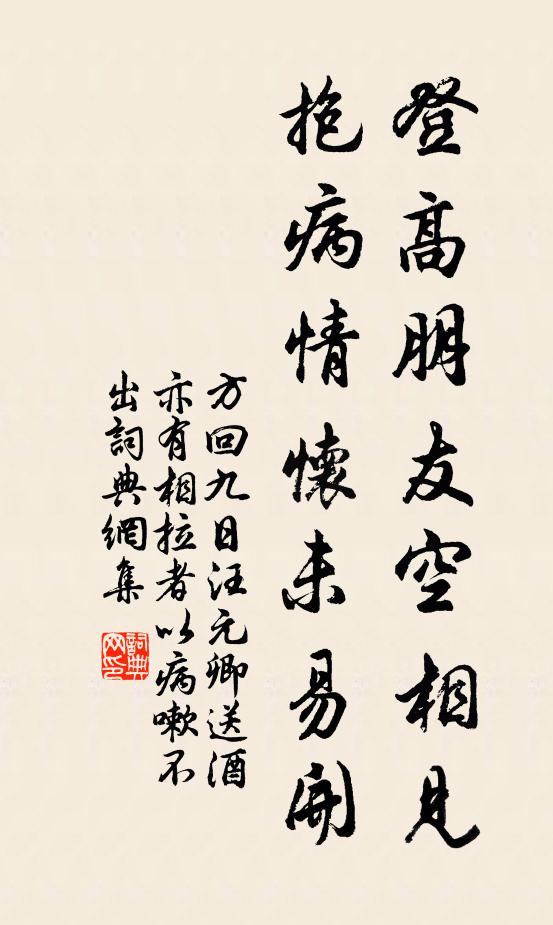 登高朋友空相見
抱病情懷未易開
方回九日汪元卿送酒
亦有相拉者以病嗽不
出詞典網集
詞典網印